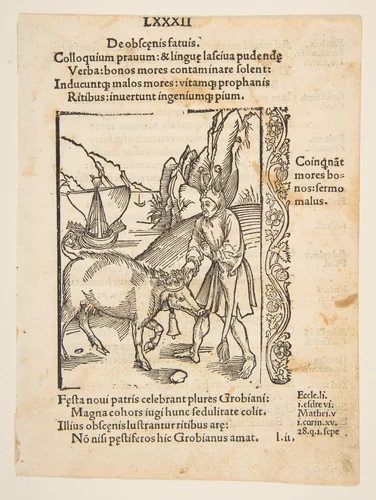 LXXXII
De obscęnis fatuis.
Colloquium prauum: & linguę lasciua pudendę
Verba: bonos mores contaminare solent:
Inducuntqƺ malos mores: vitamqƺ prophanis
Ritibus: inuertunt ingeniumqƺ pium.
Coinq̃nãt
mores bo-
nos: sermo
malus.
Fęsta noui patris celebrant plures Grobiani:
Magna cohors iugi hunc sedulitate colit.
Illius obscęnis lustrantur ritibus arę:
Nõ nisi pęstiferos hic Grobianus amat.
l.ii.
Eccle.li.
i.esdre vi.
Mathei.v
i.corin.xv.
28.q.1.sępe